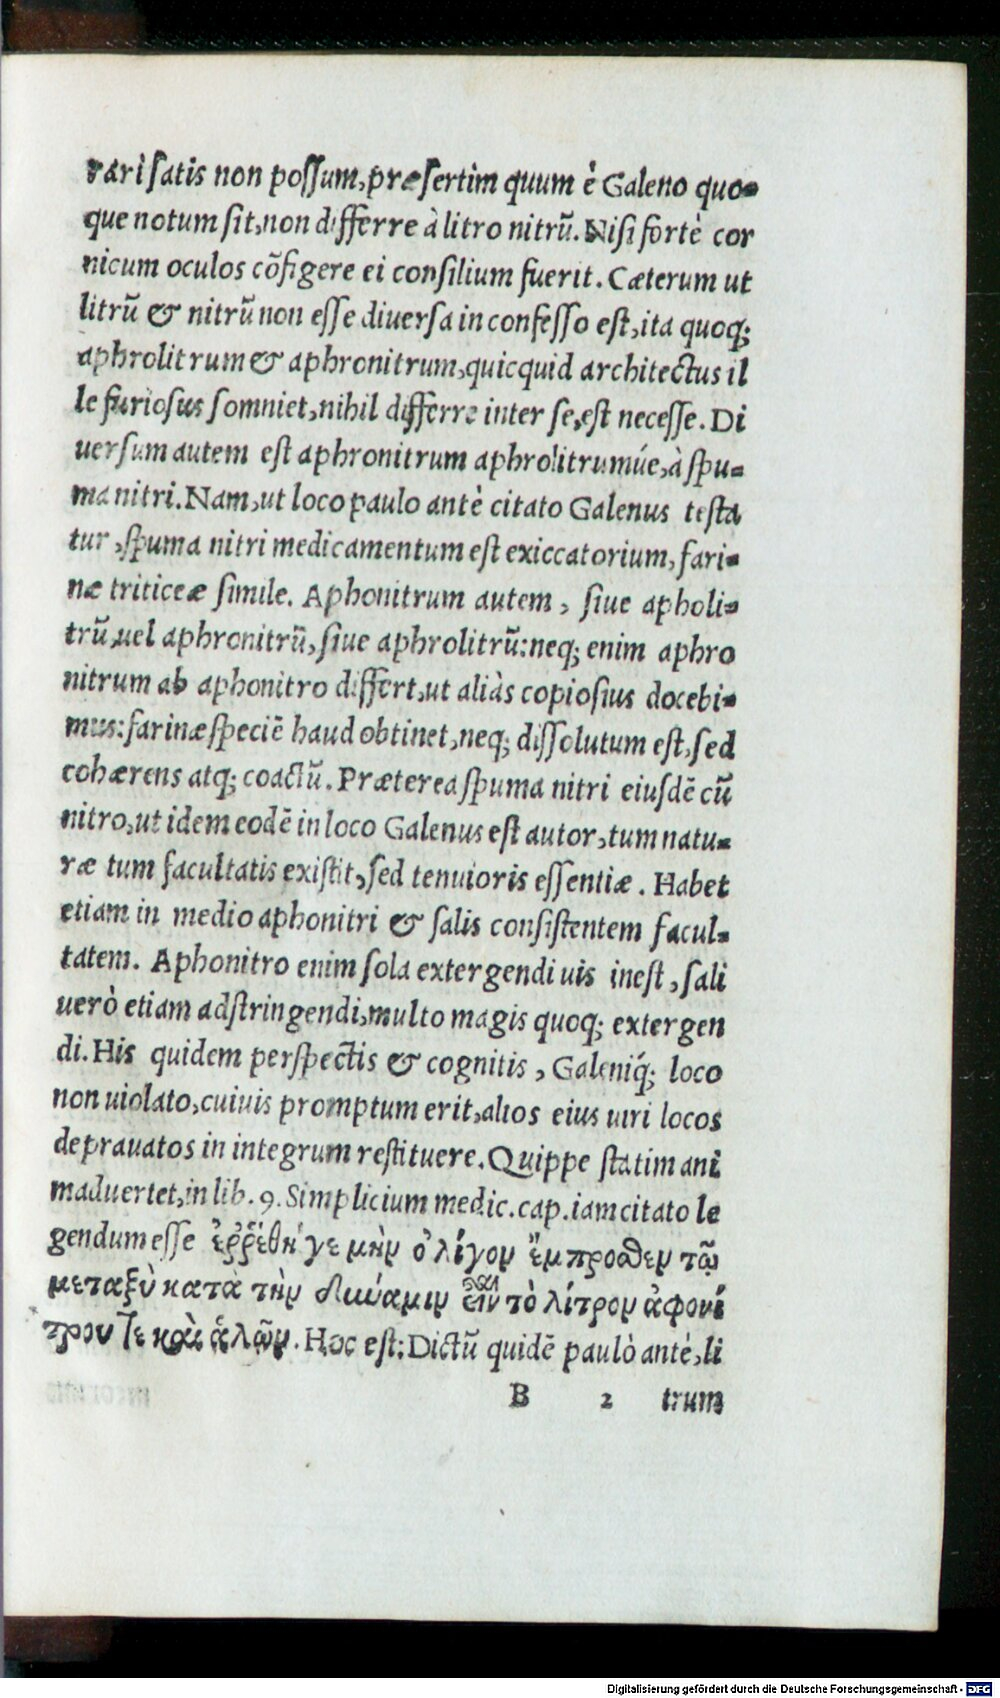 rari satis non possum, præsertim quum è Galeno quo-
que notum sit, non differre à litro nitrū. Nisi fortè cor
nicum oculos cōfigere ei consilium fuerit. Cæterum ut
litrū & nitrū non esse diuersa in confesso est, ita quoq;
aphrolitrum & aphronitrum, quicquid architectus il
le furiosus somniet, nihil differre inter se, est necesse. Di
uersum autem est aphronitrum aphrolitrumúe, à spu-
ma nitri. Nam, ut loco paulo antè citato Galenus testa
tur, spuma nitri medicamentum est exiccatorium, fari-
næ triticeæ simile. Aphonitrum autem, siue apholi-
trū, uel aphronitrū, siue aphrolitrū: neq; enim aphro
nitrum ab aphonitro differt, ut aliàs copiosius docebi-
mus: farinæ speciē haud obtinet, neq; dissolutum est, sed
cohærens atq; coactū. Præterea spuma nitri eiusdē cū
nitro, ut idem eodē in loco Galenus est autor, tum natu-
ræ tum facultatis existit, sed tenuioris essentiæ. Habet
etiam in medio aphonitri & salis consistentem facul-
tatem. Aphonitro enim sola extergendi uis inest, sali
uerò etiam adstringendi, multo magis quoq; extergen
di. His quidem perspectis & cognitis, Galeniq́; loco
non uiolato, cuiuis promptum erit, alios eius uiri locos
deprauatos in integrum restituere. Quippe statim ani
maduertet, in lib. 9. Simplicium medic. cap. iam citato le
gendum esse ἐῤῥέθη γε μὴν ὀλίγον ἔμπροσθεν τῷ
μεταξὺ κατὰ τὴν δύναμιν εἶναι τὸ λίτρον ἀφονί
τρου τε καὶ ἁλῶν. Hoc est: Dictū quidē paulò antè, li
B 2 trum
Digitalisierung gefördert durch die Deutsche Forschungsgemeinschaft - DFG